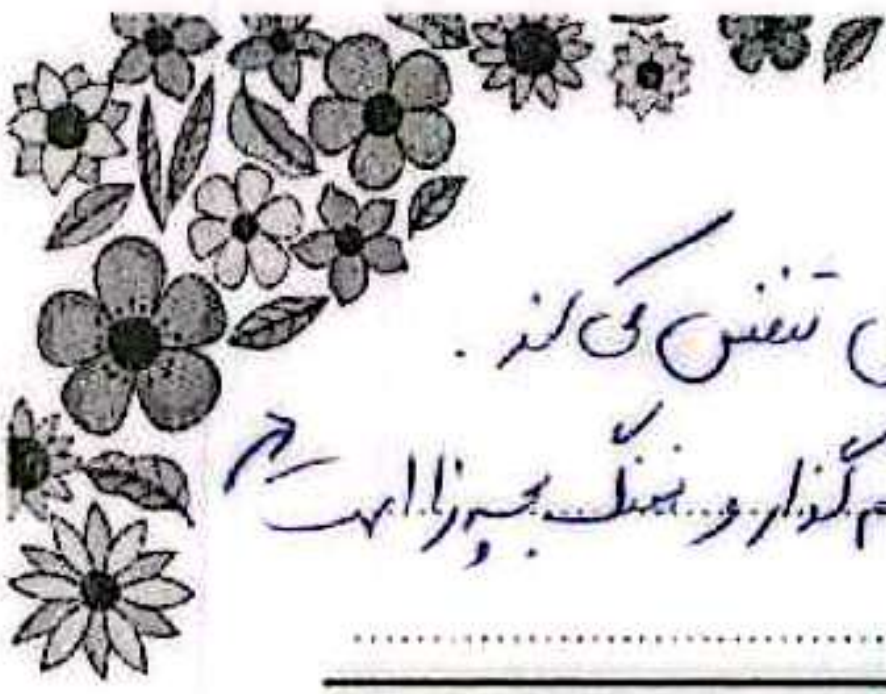 تنفس می کند .
گذار و نهنگ بچه زا است